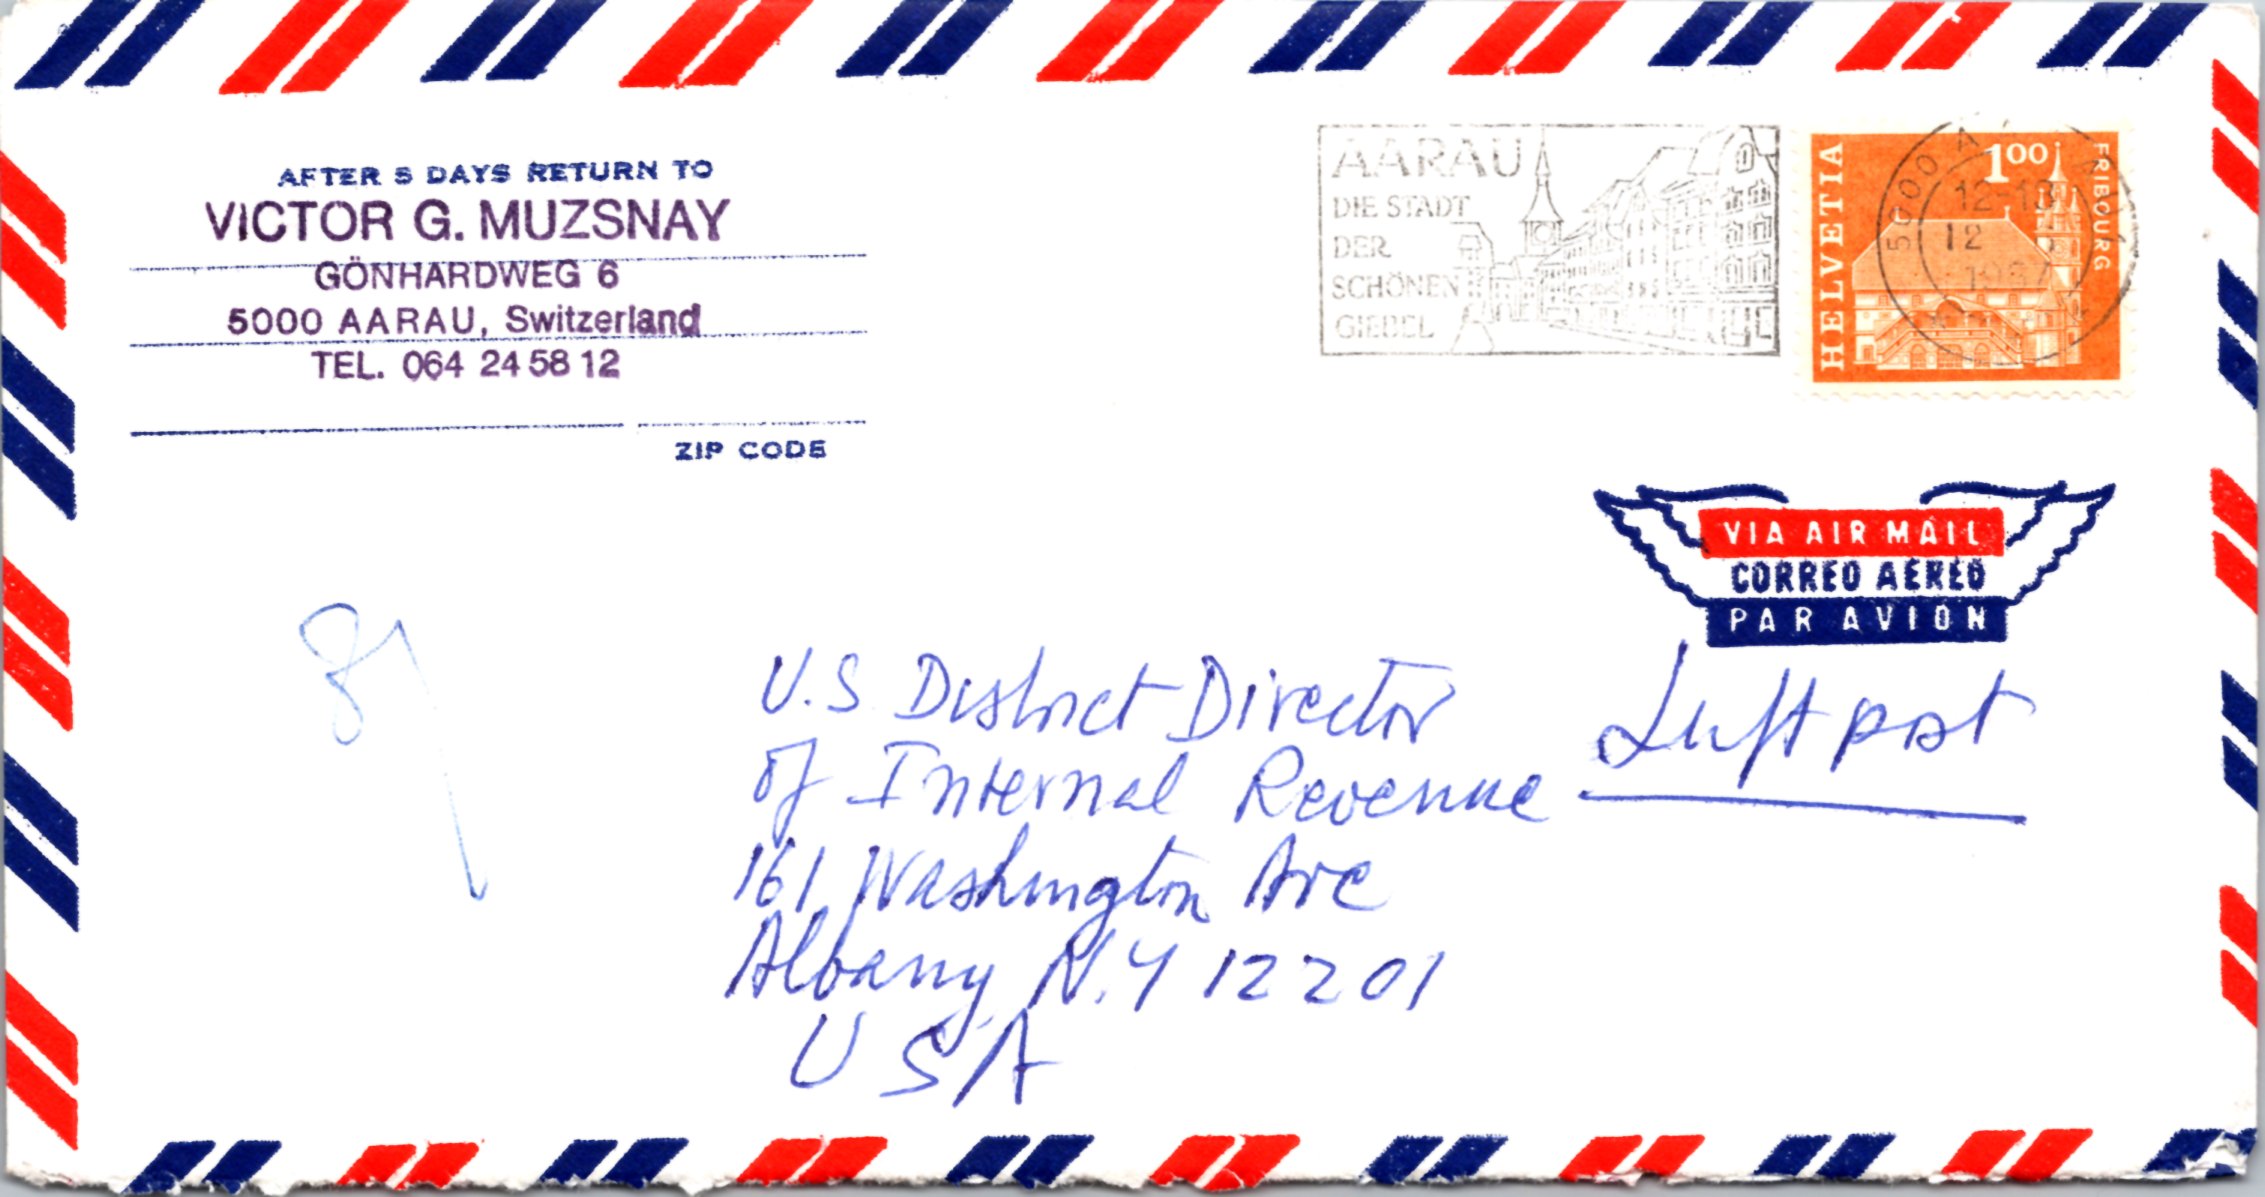 AFTER 5 DAYS RETURN TO
VICTOR G. MUZSNAY
GÖNHARDWEG 6
5000 AARAU, Switzerland
TEL. 064 24 58 12
ZIP CODE
AARAU
DIE STADT
DER
SCHÖNEN
GIEBEL
HELVETIA
100
FRIBOURG
5000 A
12-13
12
VIA AIR MAIL
CORREO AEREO
PAR AVION
Luftpost
U.S District Director
of Internal Revenue
161 Washington Ave
Albany N.Y 12201
USA